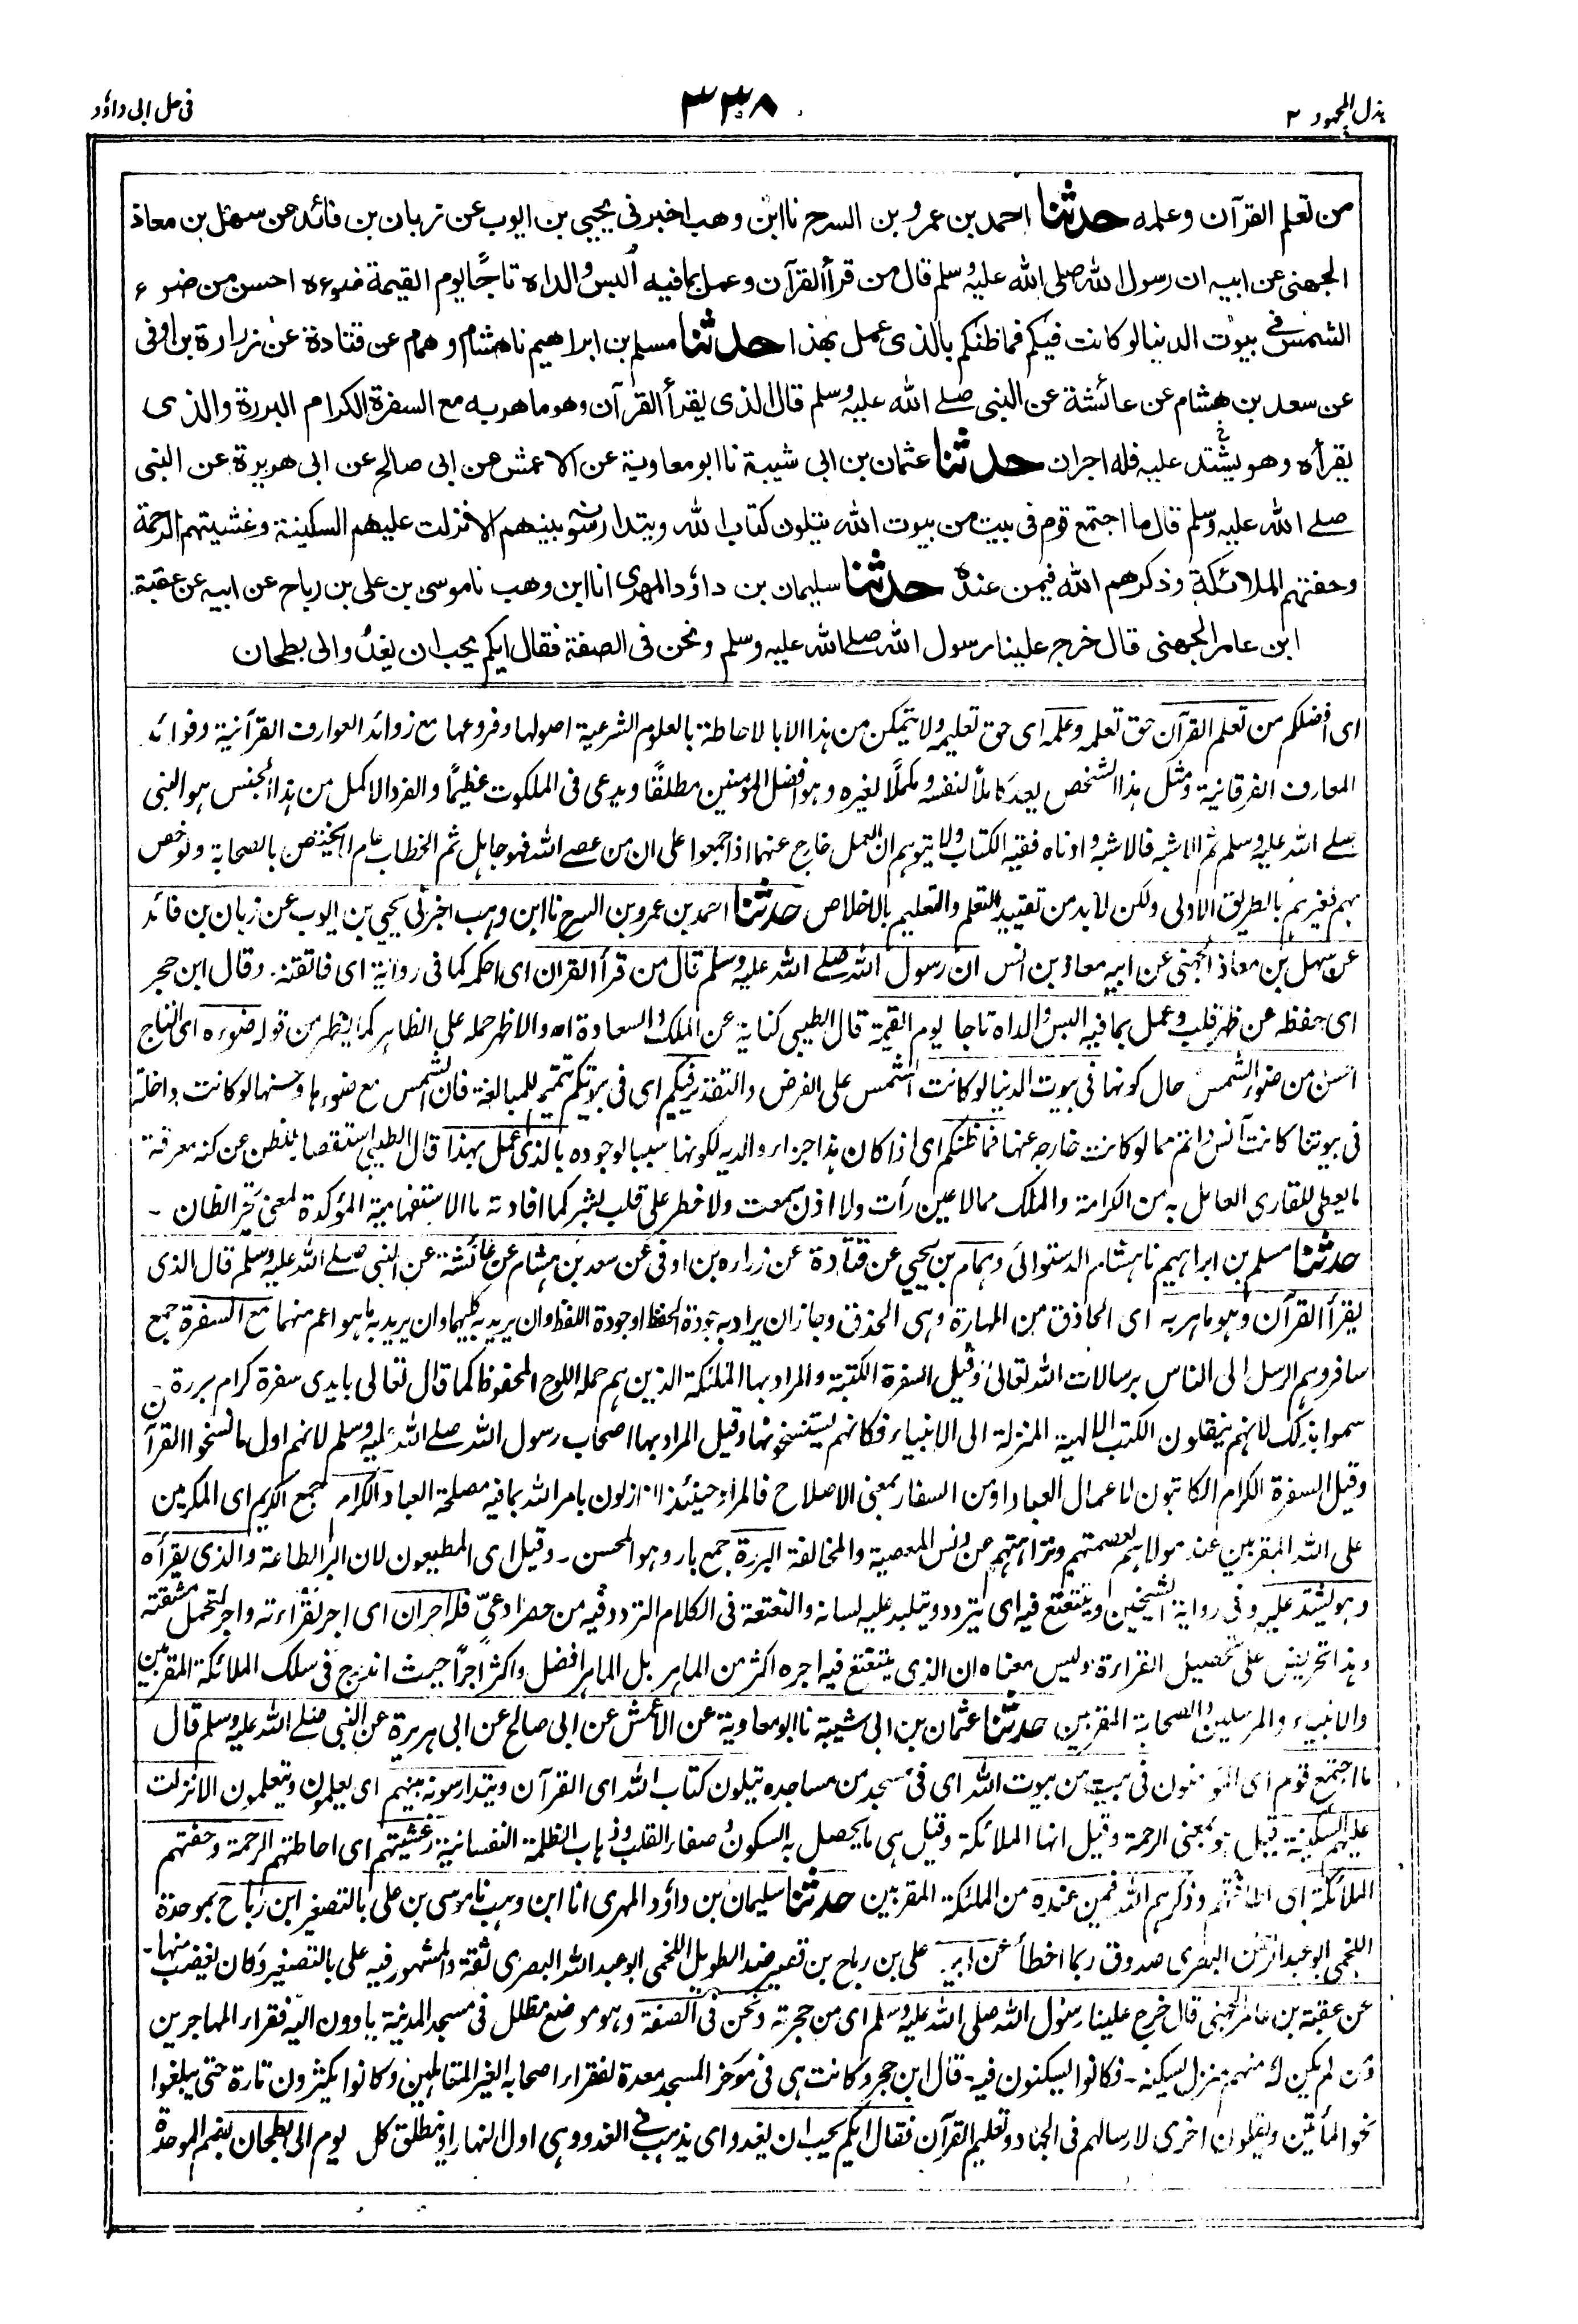 بذل المجهود ٢
٣٣٨
في حل ابي داؤد
من تعلم القرآن وعلمه حدثنا احمد بن عمرو بن السرح نا ابن وهب اخبرني يحيى بن ايوب عن زبان بن فائد عن سهل بن معاذ
الجهني عن ابيه ان رسول الله صلى الله عليه وسلم قال من قرأ القرآن وعمل بما فيه ألبس والداه تاجًا يوم القيمة ضوءه احسن من ضوء
الشمس في بيوت الدنيا لو كانت فيكم فما ظنكم بالذي عمل بهذا حدثنا مسلم بن ابراهيم نا هشام وهمام عن قتادة عن زرارة بن اوفى
عن سعد بن هشام عن عائشة عن النبي صلے الله عليه وسلم قال الذي يقرأ القرآن وهو ماهر به مع السفرة الكرام البررة والذي
يقرأه وهو يشتد عليه فله اجران حدثنا عثمان بن ابي شيبة نا ابو معاوية عن الاعمش عن ابي صالح عن ابي هريرة عن النبي
صلے الله عليه وسلم قال ما اجتمع قوم في بيت من بيوت الله يتلون كتاب الله ويتدارسونه بينهم الا نزلت عليهم السكينة وغشيتهم الرحمة
وحفتهم الملائكة وذكرهم الله فيمن عنده حدثنا سليمان بن داؤد المهري انا ابن وهب نا موسى بن على بن رباح عن ابيه عن عقبة
ابن عامر الجهني قال خرج علينا رسول الله صلے الله عليه وسلم ونحن في الصفة فقال ايكم يحب ان يغدو الى بطحان
اى افضلكم من تعلم القرآن حق تعلمه وعلمه اى حق تعليمه ولا يتمكن من هذا الا بالاحاطة بالعلوم الشرعية اصولها وفروعها مع زوائد العوارف القرآنية وفوائد
المعارف الفرقانية ومثل هذا الشخص يعد كاملًا لنفسه ومكملًا لغيره وهو افضل المؤمنين مطلقًا ويدعى في الملكوت عظيمًا والفرد الاكمل من هذا الجنس هو النبي
صلے الله عليه وسلم ثم الاشبه فالاشبه وادناه فقيه الكتاب ولا يتوهم ان العمل خارج عنهما اذ اجمعوا على ان من عصے الله فهو جاهل ثم الخطاب عام لا يختص بالصحابة ولو خص
بهم فغيرهم بالطريق الاولى ولكن لا بد من تقييد التعلم والتعليم بالاخلاص حدثنا احمد بن عمرو بن السرح نا ابن وهب اخبرني يحيى بن ايوب عن زبان بن فائد
عن سهل بن معاذ الجهني عن ابيه معاذ بن انس ان رسول الله صلے الله عليه وسلم قال من قرأ القران اى احكمه كما في رواية اى فاتقنه. وقال ابن حجر
اى حفظه عن ظهر قلب وعمل بما فيه البس والداه تاجا يوم القيمة قال الطيبي كناية عن الملك والسعادة اه والاظهر حمله على الظاهر كما يظهر من قوله ضوءه اى التاج
احسن من ضوء الشمس حال كونها في بيوت الدنيا لو كانت الشمس على الفرض والتقدير فيكم اى في بيوتكم تتميم للمبالغة فان الشمس مع ضوءها وحسنها لو كانت داخلة
في بيوتنا كانت آنس واتم مما لو كانت خارجه عنها فما ظنكم اى اذا كان هذا جزاء والديه لكونهما سببا لوجوده بالذى عمل بهذا قال الطيبي استقصاء للظن عن كنه معرفة
ما يعطى للقارى العامل به من الكرامة والملك مما لا عين رأت ولا اذن سمعت ولا خطر على قلب بشر كما افادته ما الاستفهامية المؤكدة لمعنى تحير الظان -
حدثنا مسلم بن ابراهيم نا هشام الدستوائى وهمام بن يحيى عن قتادة عن زراره بن اوفى عن سعد بن هشام عن عائشة عن النبي صلے الله عليه وسلم قال الذى
يقرأ القرآن وهو ماهر به اى الحاذق من المهارة وهى الحذق وجاز ان يراد به جودة الحفظ او جودة اللفظ وان يريد به كليهما وان يريد به ما هو اعم منهما مع السفرة جمع
سافر وهم الرسل الى الناس برسالات الله تعالى وقيل السفرة الكتبة والمراد بها الملئكة الذين هم حملة اللوح المحفوظ كما قال تعالى بايدى سفرة كرام بررة
سموا بذلك لانهم ينقلون الكتب الالهية المنزلة الى الانبياء فكانهم يستنسخونها وقيل المراد بها اصحاب رسول الله صلے الله عليه وسلم لانهم اول ما نسخوا القرآن
وقيل السفرة الكرام الكاتبون لاعمال العباد او من السفار بمعنى الاصلاح فالمراد حينئذ النازلون بامر الله بما فيه مصلحة العباد الكرام جمع الكريم اى المكرمين
على الله المقربين عند مولاهم لعصمتهم ونزاهتهم عن دنس المعصية والمخالفة البررة جمع بار وهو المحسن - وقيل اى المطيعون لان البر الطاعة والذى يقرأه
وهو يشتد عليه وفى رواية الشيخين ويتتعتع فيه اى يتردد ويتلبد عليه لسانه والتعتعة فى الكلام التردد فيه من حصر او عيّ فله اجران اى اجر لقراءته واجر لتحمل مشقته
وهذا تحريض على تحصيل القراءة وليس معناه ان الذى يتتعتع فيه اجره اكثر من الماهر بل الماهر افضل واكثر اجرًا حيث اندرج فى سلك الملائكة المقربين
والانبياء والمرسلين والصحابة المقربين حدثنا عثمان بن ابى شيبة نا ابو معاوية عن الاعمش عن ابى صالح عن ابى هريرة عن النبى صلے الله عليه وسلم قال
ما اجتمع قوم اى المؤمنون فى بيت من بيوت الله اى فى مسجد من مساجده يتلون كتاب الله اى القرآن ويتدارسونه بينهم اى يعلمون ويتعلمون الا نزلت
عليهم السكينة قيل هو بمعنى الرحمة وقيل انها الملائكة وقيل هى ما يحصل به السكون وصفاء القلب وذهاب الظلمة النفسانية وغشيتهم اى احاطتهم الرحمة وحفتهم
الملائكة اى وذكرهم الله فيمن عنده من الملئكة المقربين حدثنا سليمان بن داؤد المهرى انا ابن وهب نا موسى بن على بالتصغير ابن رباح بموحدة
اللخمى ابو عبد الرحمن البصرى صدوق ربما اخطأ عن ابيه على بن رباح بن قصير ضد الطويل اللخمى ابو عبد الله البصرى ثقة والمشهور فيه على بالتصغير وكان يغضب منها-
عن عقبة بن عامر الجهنى قال خرج علينا رسول الله صلى الله عليه وسلم اى من حجرته ونحن فى الصفة وهو موضع مظلل فى مسجد المدينة ياوون اليه فقراء المهاجرين
ومن لم يكن له منهم منزل يسكنه - فكانوا يسكنون فيه - قال ابن حجر وكانت هى فى مؤخر المسجد معدة لفقراء اصحابه الغير المتاهلين وكانوا يكثرون تارة حتى يبلغوا
نحو المأتين ويقلون اخرى لارسالهم فى الجهاد وتعليم القرآن فقال ايكم يحب ان يغدو اى يذهب فى الغدو وهى اول النهار او ينطلق كل يوم الى بطحان بضم الموحدة